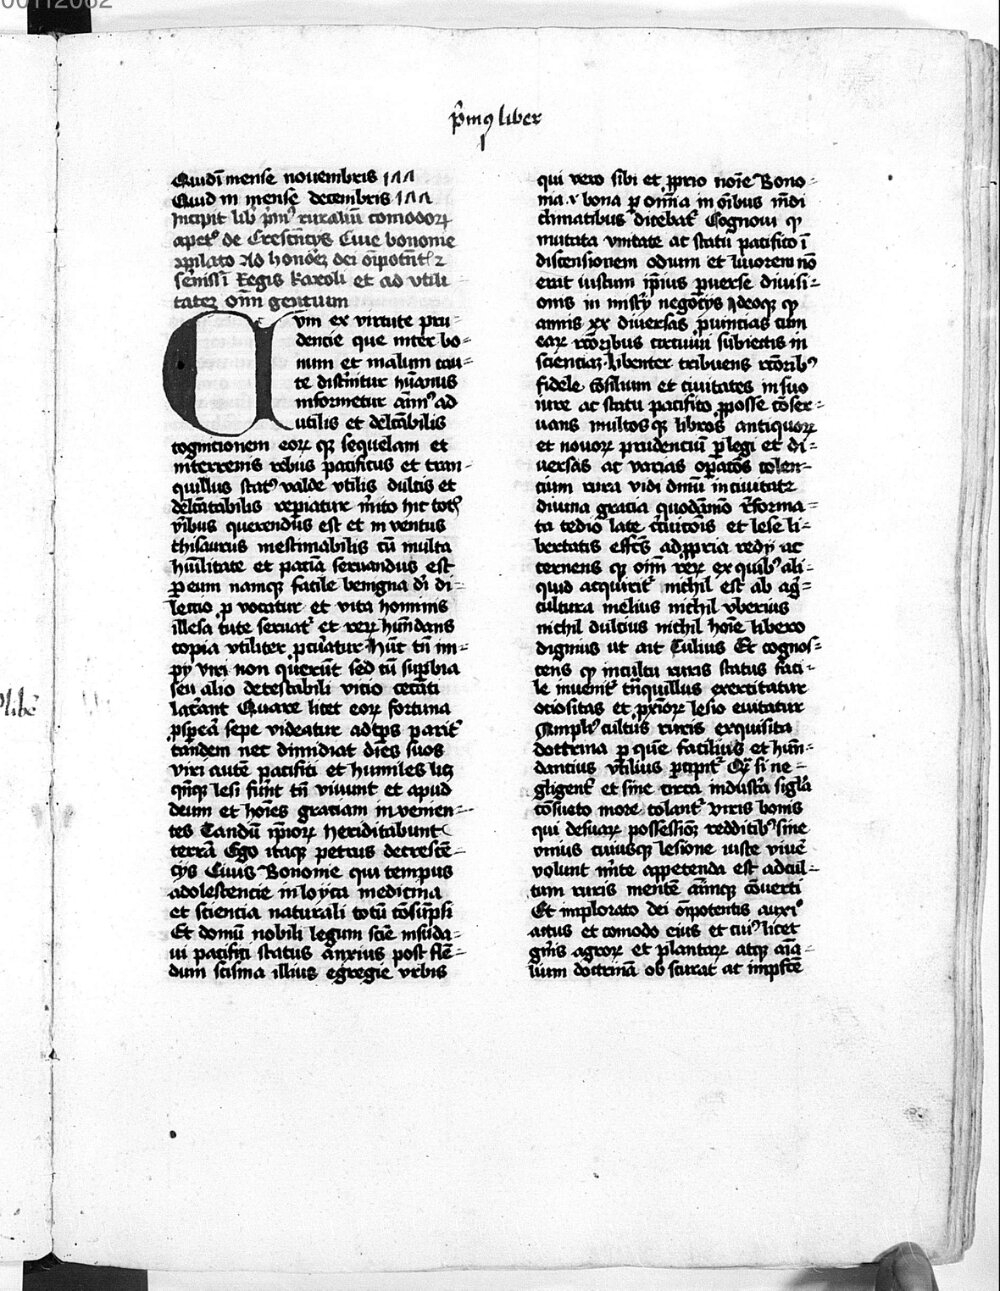 p̄mꝯ liber
Quid ī mense nouembris
Quid in mense decembris
Incipit lib̄ p̄mꝰ ruraliū comodoꝝ
apetꝰ de Cresctn̄cys Ciue bononie
ad honoꝛē dei oīpotn̄t
sēnissī Regis Karoli et ad vtili
tateꝫ om̄ gentium
Cum ex virtute pru-
dencie que inter bo-
num et malum cau-
te distīitur hūanus
informetur aīmꝰ ad
utilis et delcābilis
cognicionem eoꝝ ꝙ sequelam et
interrenis rebus pacificus et tran-
quillus statꝰ valde vtilis dulcis et
delcātabilis repiatur m̄ito hic totꝭ
v̄ibus querendus est et in ventus
thisaurus inestimabilis cū multa
hūilitate et paciā seruandus est
Peum namqꝫ facile benigna di di-
lectio ꝓ vocatur et vita hominis
illesa tute seruatꝰ et reꝝ hūdans
copia vtiliter pcuratur hūt tn̄ im-
py viri non querūt sed cū supbia
seu alio detestabili vicio cecati
Quare licet eoꝝ fortuna
pspeā sepe videatur adtp̄s parit̄
tandem nec dimidiāt dies suos
viri autē pacifici et humiles lꝫ
qn̄qꝫ lesi fiūt tn̄ viuunt et apud
deum et hoīes graciam in venien-
tes Tandū ip̄ioꝝ heriditabunt
terrā Ego itaqꝫ petrus decrescē-
cys Ciuis Bononie qui tempus
adolestencie in loyca medicina
et sciencia naturali totū cōsūpsi
Et domū nobili legum sciē insuda-
ui pacifici status anxius post flē-
dum scisma illius egregie vrbis
qui vero sibi et ꝓprio noīe Bono-
nia .v. bona ꝑ om̄ia in oībus mūdi
climatibus dicebatꝰ Cognoui ꝙ
mutata vnitate ac statu pacifico ī
discensionem odium et liuorem nō
erat iustum ip̄ius ꝑuerse diuisi-
onis in miscȳ negocys Ideoqꝫ ꝙ
annis xx diuersas ꝓuincias cum
eaꝝ rcōribus circuiui subiectis in
scienciaꝫ libenter tribuens rcōribꝰ
fidele cōsilium et ciuitates in suo
iure ac statu pacifico ꝓposse cōser-
uans multosqꝫ libros antiquoꝝ
et nouoꝝ prudenciū ꝑlegi et di-
uersas ac varias opacōs colen-
cium rura vidi dmū in ciuitatꝫ
diuina gracia quodāmo r̄forma-
ta tedio late et lese li-
bertatis effcs̄ adꝓpria redy ac
cernens ꝙ oīm reꝝ ex quibꝰ ali-
quid acquiritꝰ nichil est ab ag̃-
cultura melius nichil vberius
nichil dulcius nichil hoīe libero
dignius ut ait Tulius Et cognos-
cens ꝙ incultu ruris status faci-
le inuenitꝰ tn̄quillus exercitatur
ociositas et pxioꝝ lesio euitatur
Ampliꝰ cultus ruris exquisita
doctrina ꝑ quē facilius et hūn-
dancius vtilius pcipitꝰ Qꝫ si ne-
gligentꝰ et sine certa industā siglā
cōsueto more colantꝰ Viris bonis
qui desuaꝝ possessiōꝫ redditibꝰ sine
vnius cuiusqꝫ lesione iuste viuē
volunt mīte appetenda est adcul-
tum ruris mentē aīmqꝫ cōuerti
Et implorato dei oīpotentis auxiꝰ
acitus et comodo eius et cuiꝰ licet
gn̄is agroꝝ et plantaꝝ atqꝫ aīa-
lium doctrinā ob scurāt ac impfctē